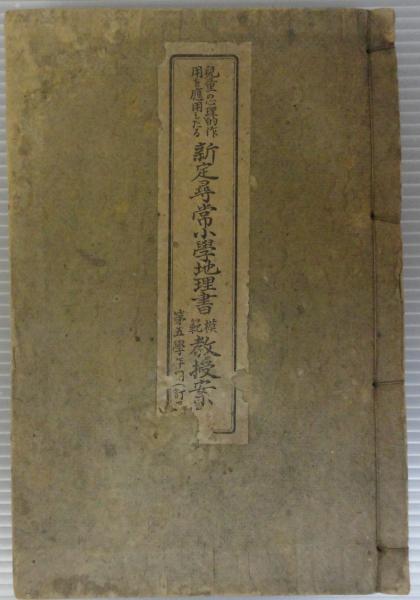 兒童の心理的作
用を應用したる
新定尋常小學地理書
模範
教授案
第五學年用(訂